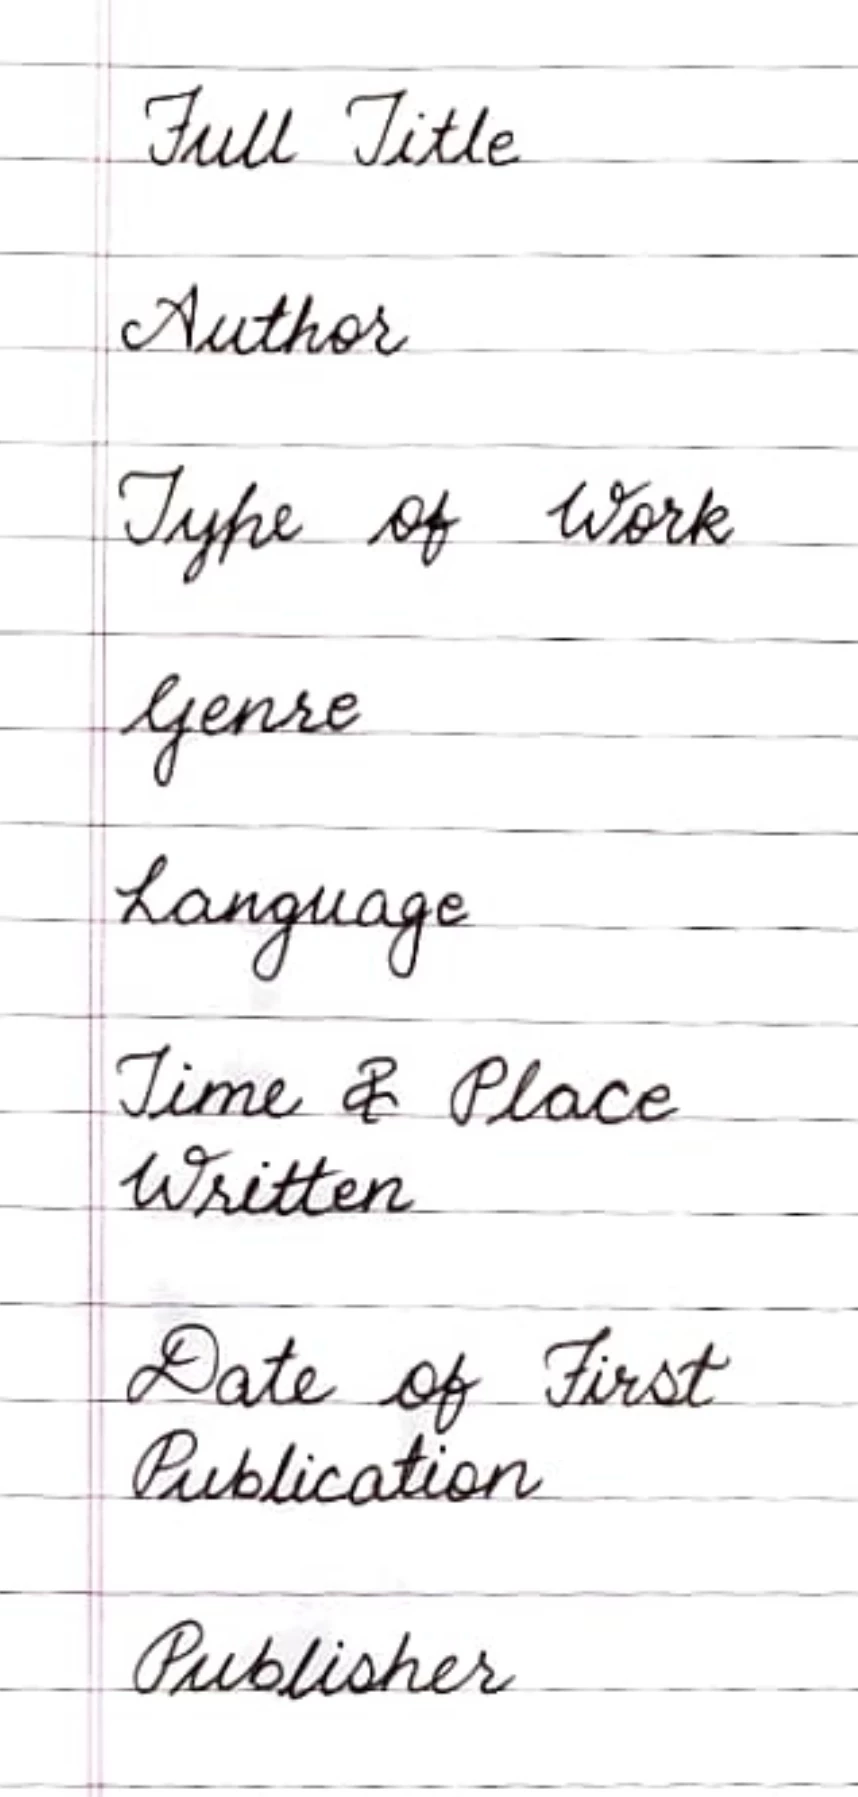 Full Title
Author
Type of Work
Genre
Language
Time & Place
Written
Date of First
Publication
Publisher